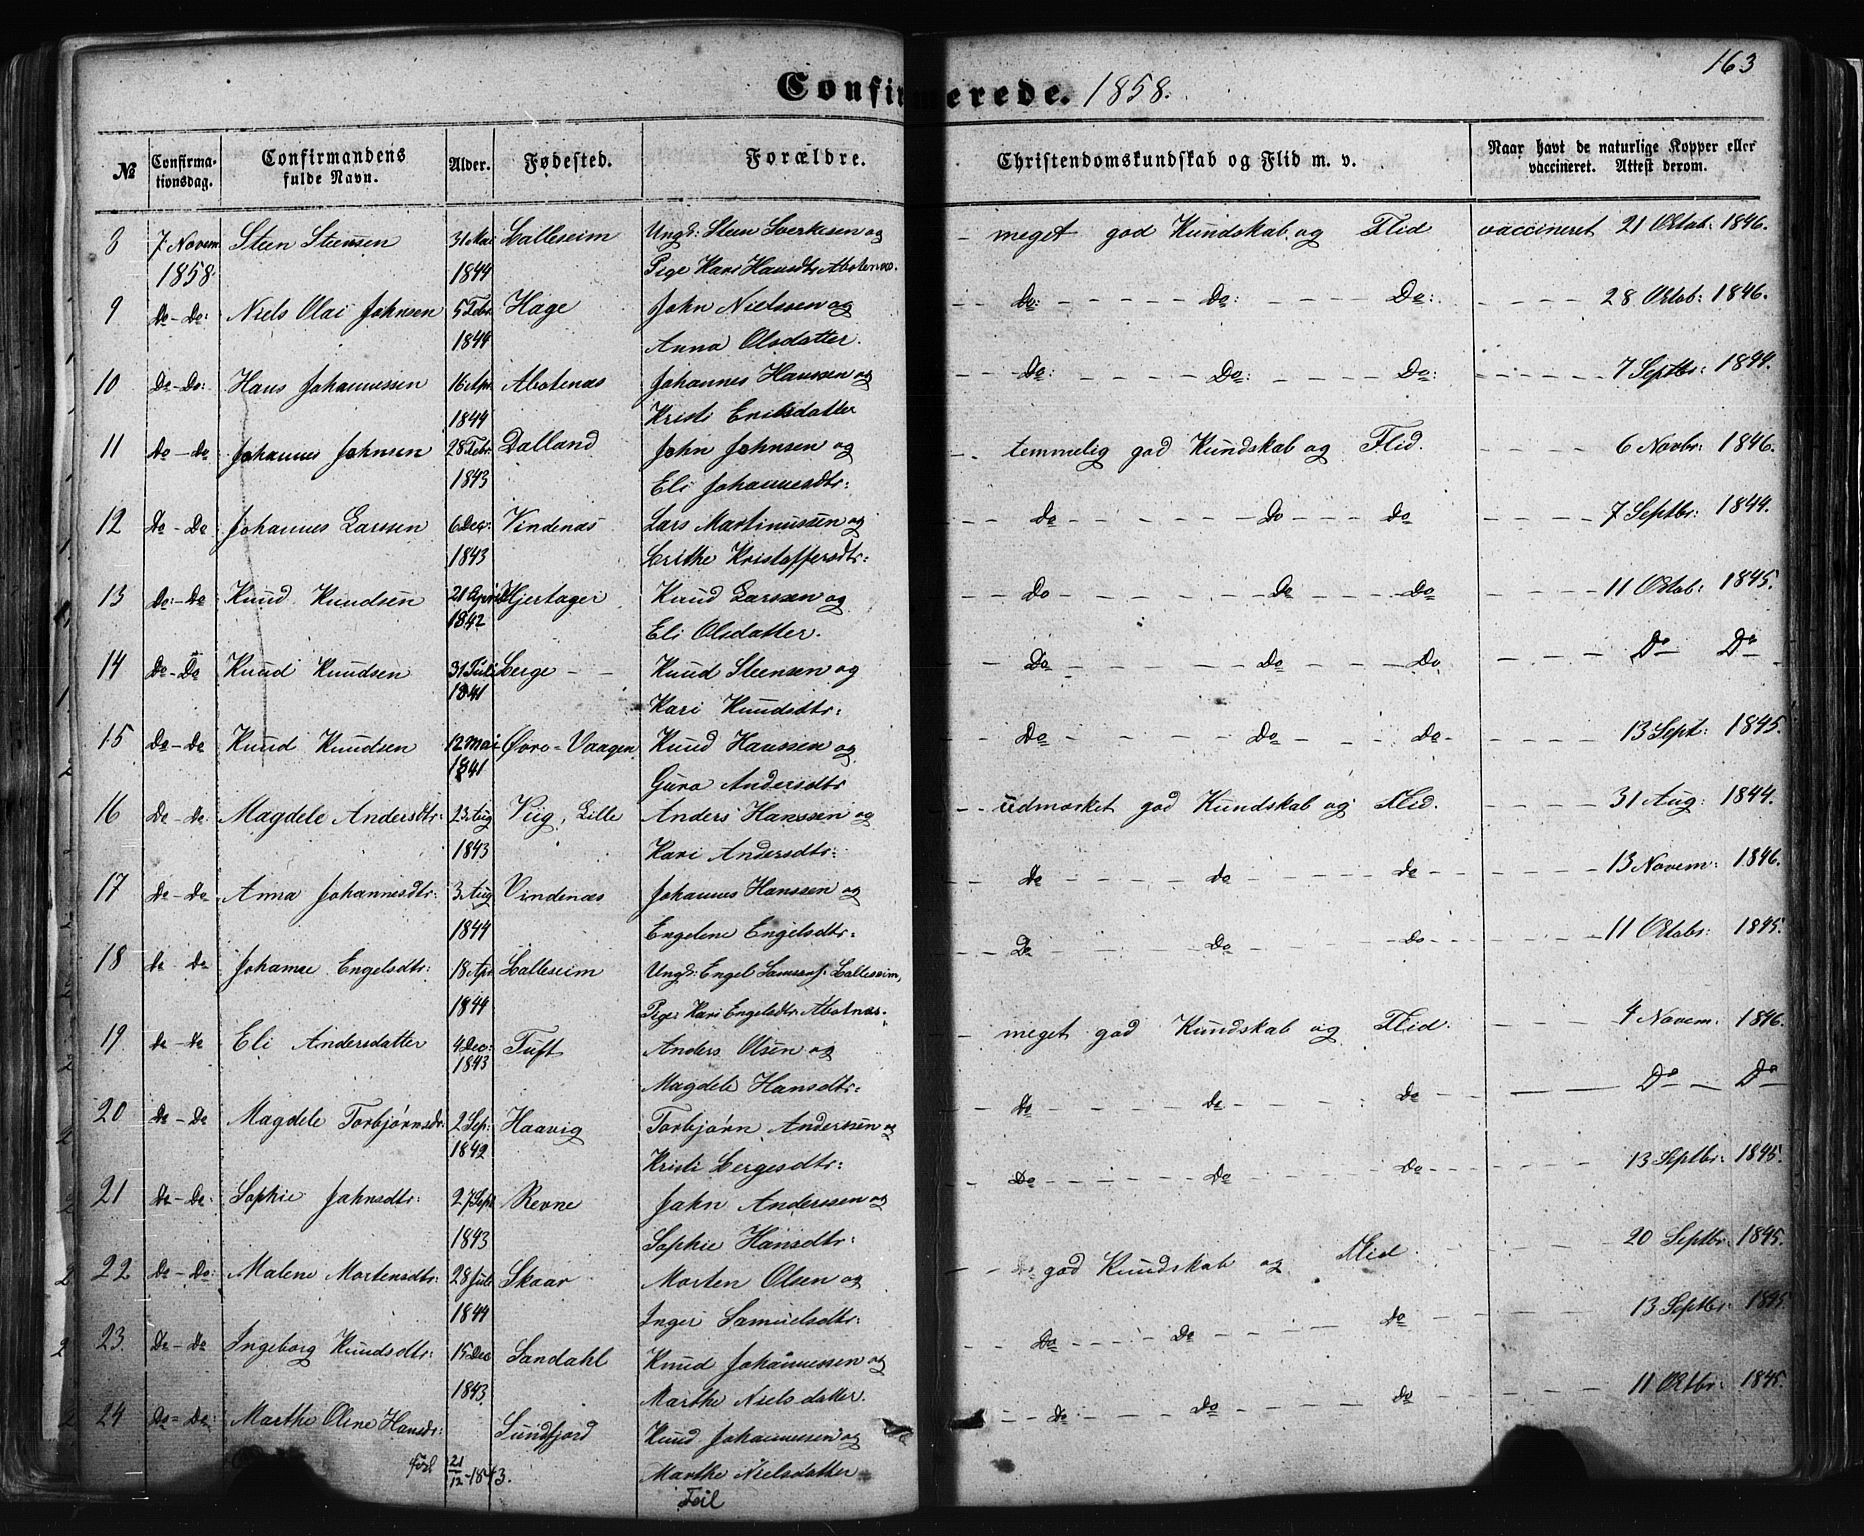 163
Confirmerede. 1858.
№ Confirmationsdag. Confirmandens fulde Navn. Alder. Fødested. Forældre. Christendomskundskab og Flid m. v. Naar havt de naturlige Kopper eller vaccineret. Attest derom.
8 7. Novem Steen Steensen 31 Mai Balleseim Ungk: Steen Sverkesen og - meget god Kundskab og Flid vaccineret 21 Octob: 1846.
1858. 1844 Pige Kari Hansdtr Abotenæs.
9 Do - Do: Niels Olai Johnsen 5 Febr Hage John Nielsen og Do: Do: Do: 28 Octob: 1846.
1844 Anna Olsdatter.
10 Do - Do: Hans Johannessen 16 Apr Abotenæs Johannes Hanssen og Do: Do: Do: 7 Septbr: 1844.
1844 Kristi Eriksdatter
11 Do - Do Johannes Johnsen 28 Febr: Dalland John Johnsen og temmelig god Kundskab og Flid. 6 Novbr: 1846.
1843 Eli Johannesdtr:
12 Do - Do Johannes Larssen 6 Dec: Vindenæs Lars Martinussen og Do Do Do 7 Septbr: 1844.
1843 Brithe Kristoffersdtr:
13 Do: - Do Knud Knudsen 21 April Hjertager Knud Larssen og Do Do Do 11 Octob: 1845.
1842 Eli Olsdatter.
14 Do - Do Knud Knudsen 31 Juli Berge - - Knud Steensen og Do Do Do Do Do
1841 Kari Knudsdtr:
15 Do - Do Knud Knudsen 12 Mai Øvre-Vaagen Knud Hanssen og Do Do Do 13 Sept: 1845.
1841 Guro Andersdtr
16 Do - Do: Magdele Andersdtr: 23 Aug Viig, Lille Anders Hanssen og - - udmærket god Kundskab og Flid. 31 Aug: 1844.
1843 Kari Andersdtr:
17 Do - Do: Anna Johannesdtr: 3 Aug Vindenæs Johannes Hanssen og Do Do Do 13 Novem: 1846.
1844 Engelene Engelsdtr:
18 Do - Do Johanne Engelsdtr: 18 Apr Balleseim Ungk: Engel Balleseim, Do Do Do 11 Octobr: 1845.
1844 Pige Kari Engelsdtr: Abotnæs.
19 Do - Do Eli Andersdatter 4 Dec: Tuft Anders Olsen og - meget god Kundskab og Flid. 4 Novem: 1846.
1843 Magdele Hansdtr:
20 Do - Do Magdele Torbjørnsdr: 2 Sep: Haavig Torbjørn Anderssen og Do Do Do Do Do
1842 Kristi Bergesdtr:
21 Do - Do: Sophie Johnsdtr: 27 Sept Revne John Anderssen og Do Do Do 13 Septbr: 1845.
1843 Sophie Hansdtr:
22 Do - Do: Malene Mortensdtr: 28 Juli Skaar Morten Olsen og god Kundskab og Flid 20 Septbr: 1845.
1844 Inger Samuelsdtr:
23. Do - Do Ingeborg Knudsdtr: 15 Dec Sandahl Knud Johannessen og Do Do Do 13 Septbr: 1845.
1843. Marthe Nielsdatter.
24 Do - Do: Marthe Oline Hansdr: Sundfjord Knud Johannessen og Do Do Do 11 Octbr: 1845.
født 21/12 - 1843. Marthe Nielsdatter
Feil